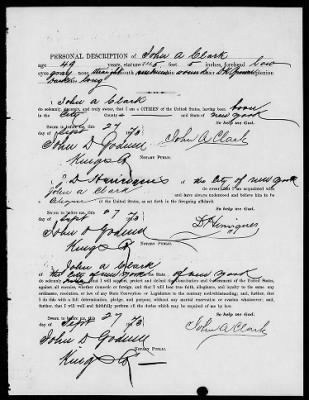 PERSONAL DESCRIPTION of John A Clark
age 49 years, stature 5 feet 5 inches, forehead low
eyes gray nose straight mouth
dark long
I, John A Clark
do solemnly, sincerely, and truly swear, that I am a CITIZEN of the United States, having been born
in the City County of and State of New York
So help me God.
Sworn to before me, this 27
day of Sept 1873 John A Clark
John D Godwin
Kings Co
NOTARY PUBLIC
I, D Henriques of the City of New York
do swear that I am acquainted with
John A Clark and have always understood and believe him to be
a Citizen of the United States, as set forth in the foregoing affidavit.
So help me God.
Sworn to before me, this 27
day of Sept 1873 D Henriques
John D Godwin
Kings Co
NOTARY PUBLIC
I, John A Clark
of the City of New York State of New York
do solemnly swear that I will support, protect and defend the Constitution and Government of the United States,
against all enemies, whether domestic or foreign; and that I will bear true faith, allegiance, and loyalty to the same, any
ordinance, resolution, or law of any State Convention or Legislature to the contrary notwithstanding; and, further, that
I do this with a full determination, pledge, and purpose, without any mental reservation or evasion whatsoever; and,
further, that I will well and faithfully perform all the duties which may be required of me by law.
So help me God.
Sworn to before me, this 27
day of Sept 1873 John A Clark
John D Godwin
Kings Co
NOTARY PUBLIC